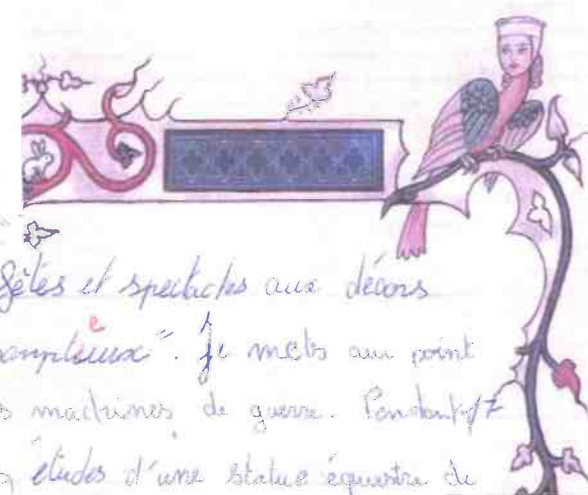 fêtes et spectacles aux décors
Je mets au point
machines de guerre. Pendant 17
études d'une statue équestre de